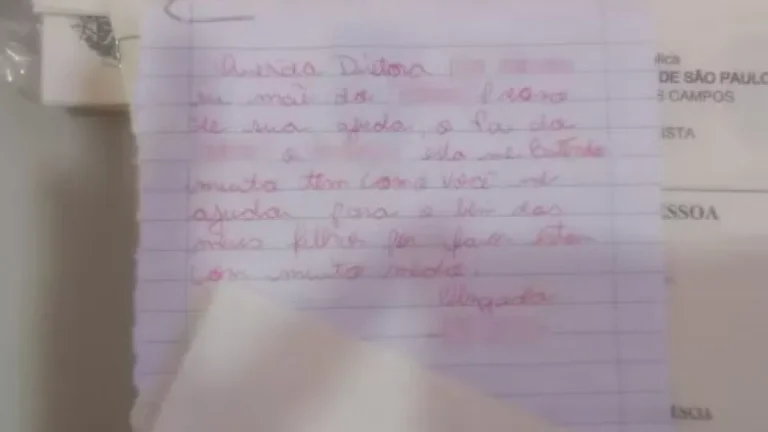 Querida Diretora
eu mãe da preciso
de sua ajuda, o Pai da
e o esta me Batendo
muito tem como você me
ajudar para o bem dos
meus filhos por favor estou
com muito medo.
Obrigada
DE SÃO PAULO
CAMPOS
ISTA
SSOA
ÊNCIA